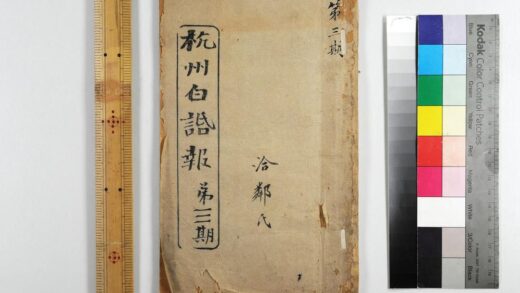 第三期
洽鄰氏
杭州白話報 第三期
Kodak Color Control Patches
Blue
Cyan
Green
Yellow
Red
Magenta
White
3/Color
Black